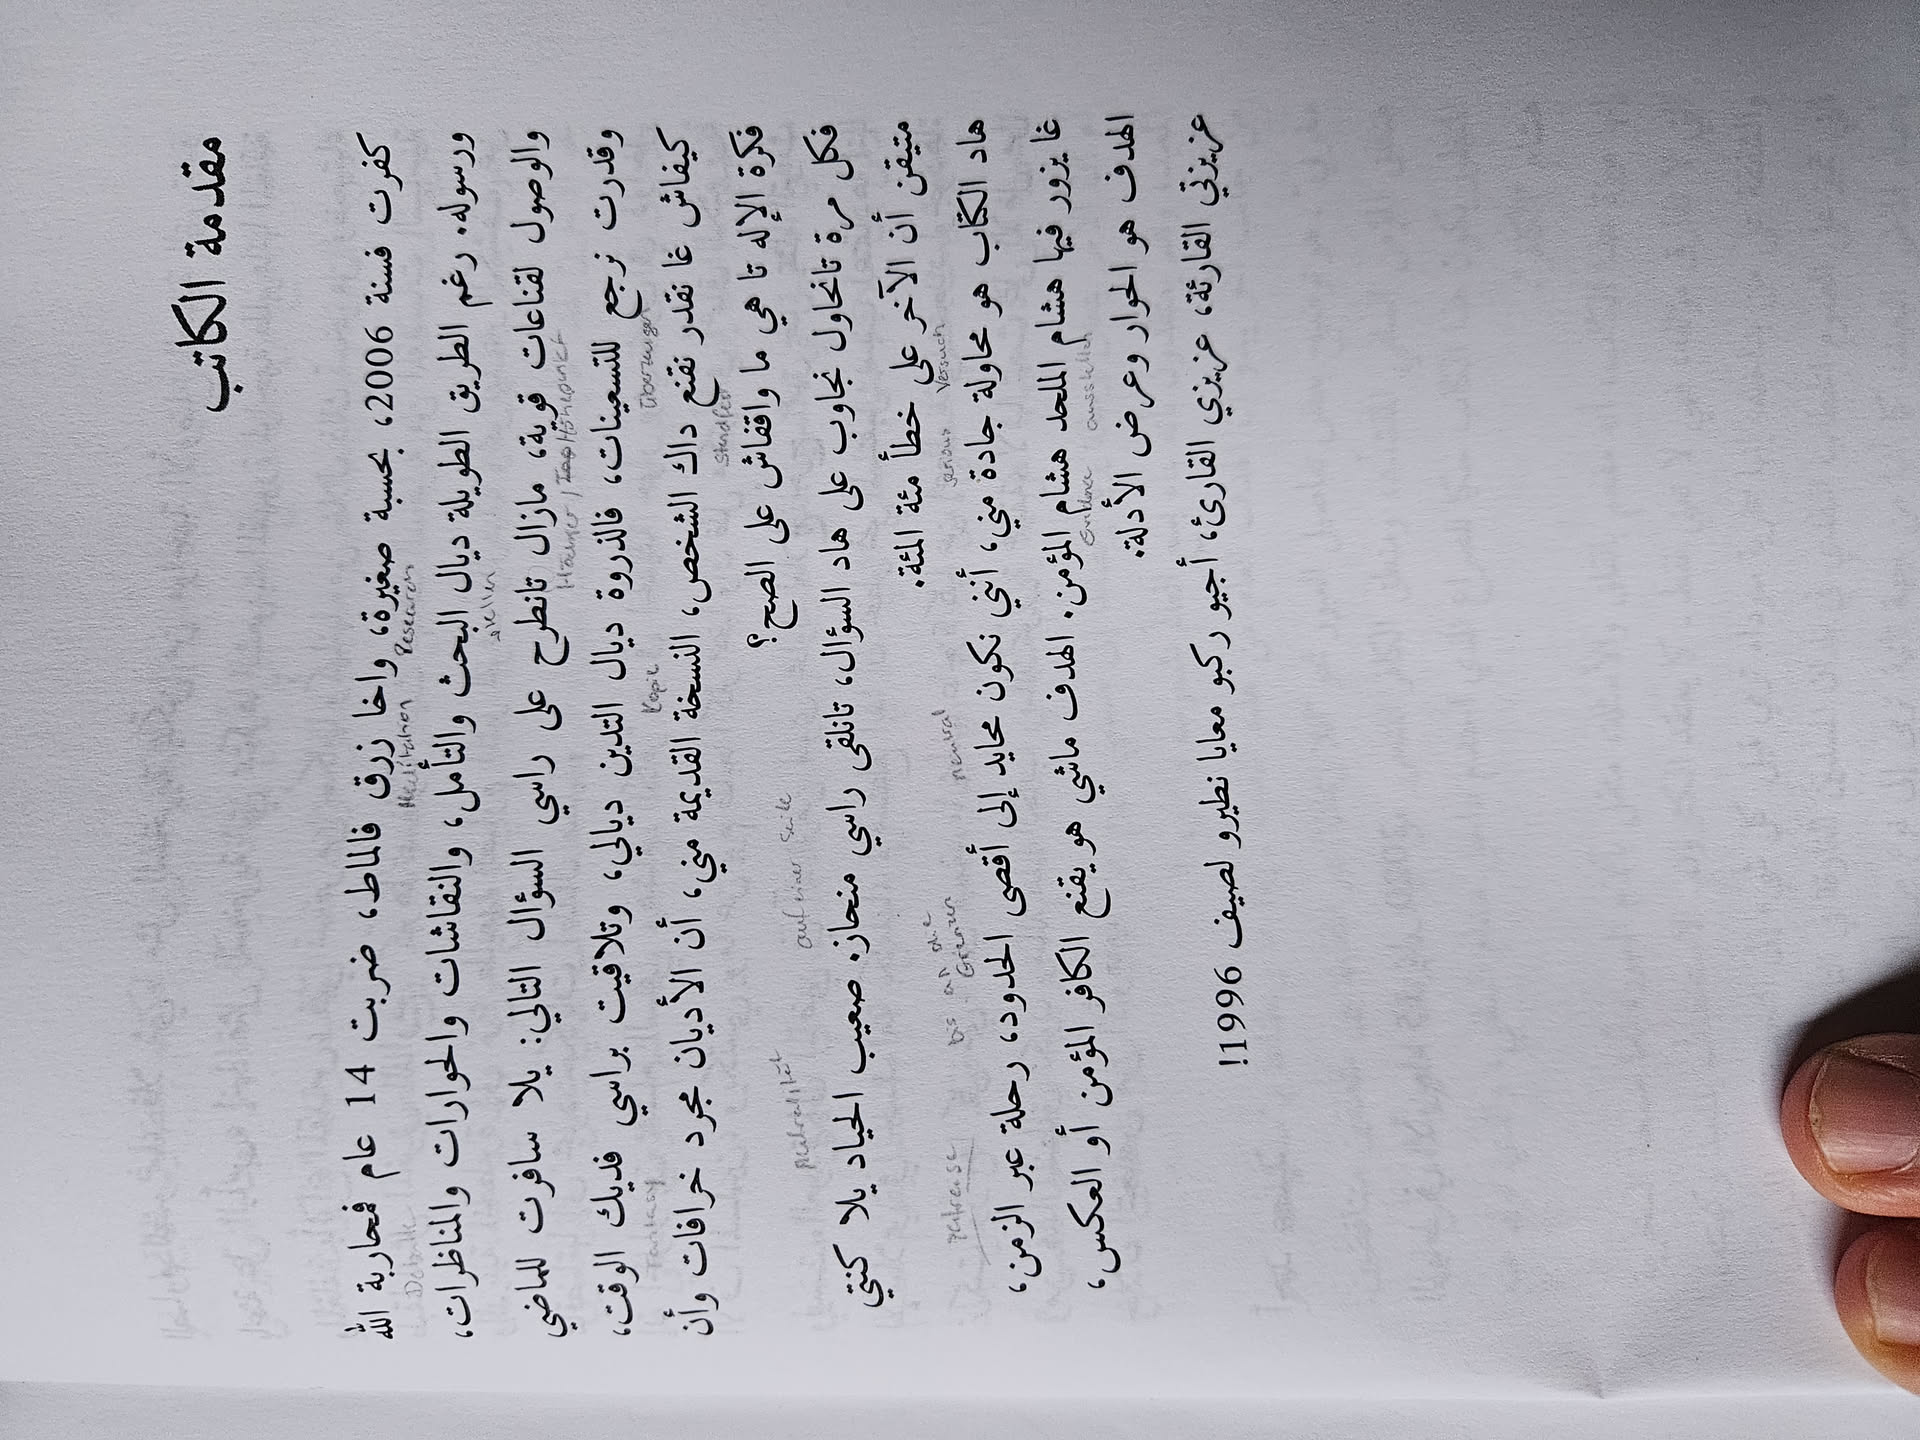 مقدمة الكاتب
كفرت فسنة 2006، بحسبة صغيرة، واخا زرق فالماط، ضربت 14 عام فمحاربة الله
Research
Meditation
Debatte
ورسوله. رغم الطريق الطويلة ديال البحث والتأمل، والنقاشات والحوارات والمناظرات،
stellen
والوصول لقناعات قوية، مازال تانطرح على راسي السؤال التالي: يلا سافرت للماضي
Höhepunkt
Überzeugen
وقدرت نرجع للتسعينات، فالذروة ديال التدين ديالي، وتلاقيت براسي فديك الوقت،
Kopie
Fantasy
كيفاش غا نقدر نقنع داك الشخص، النسخة القديمة مني، أن الأديان مجرد خرافات وأن
فكرة الإله تا هي ما واقفاش على الصح؟
auf einer Seite
Neutralität
فكل مرة تانحاول نجاوب على هاد السؤال، تانلقى راسي منحاز. صعيب الحياد يلا كنتي
متيقن أن الآخر على خطأ مئة المئة.
Versuch
serious
neutral
bis an die Grenzen
Zeitreise
هاد الكتاب هو محاولة جادة مني، أنني نكون محايد إلى أقصى الحدود، رحلة عبر الزمن،
غا يزور فيها هشام الملحد هشام المؤمن. الهدف ماشي هو يقنع الكافر المؤمن أو العكس،
Evidence
الهدف هو الحوار وعرض الأدلة.
عزيزتي القارئة، عزيزي القارئ، أجيو ركبو معايا نطيرو لصيف 1996!